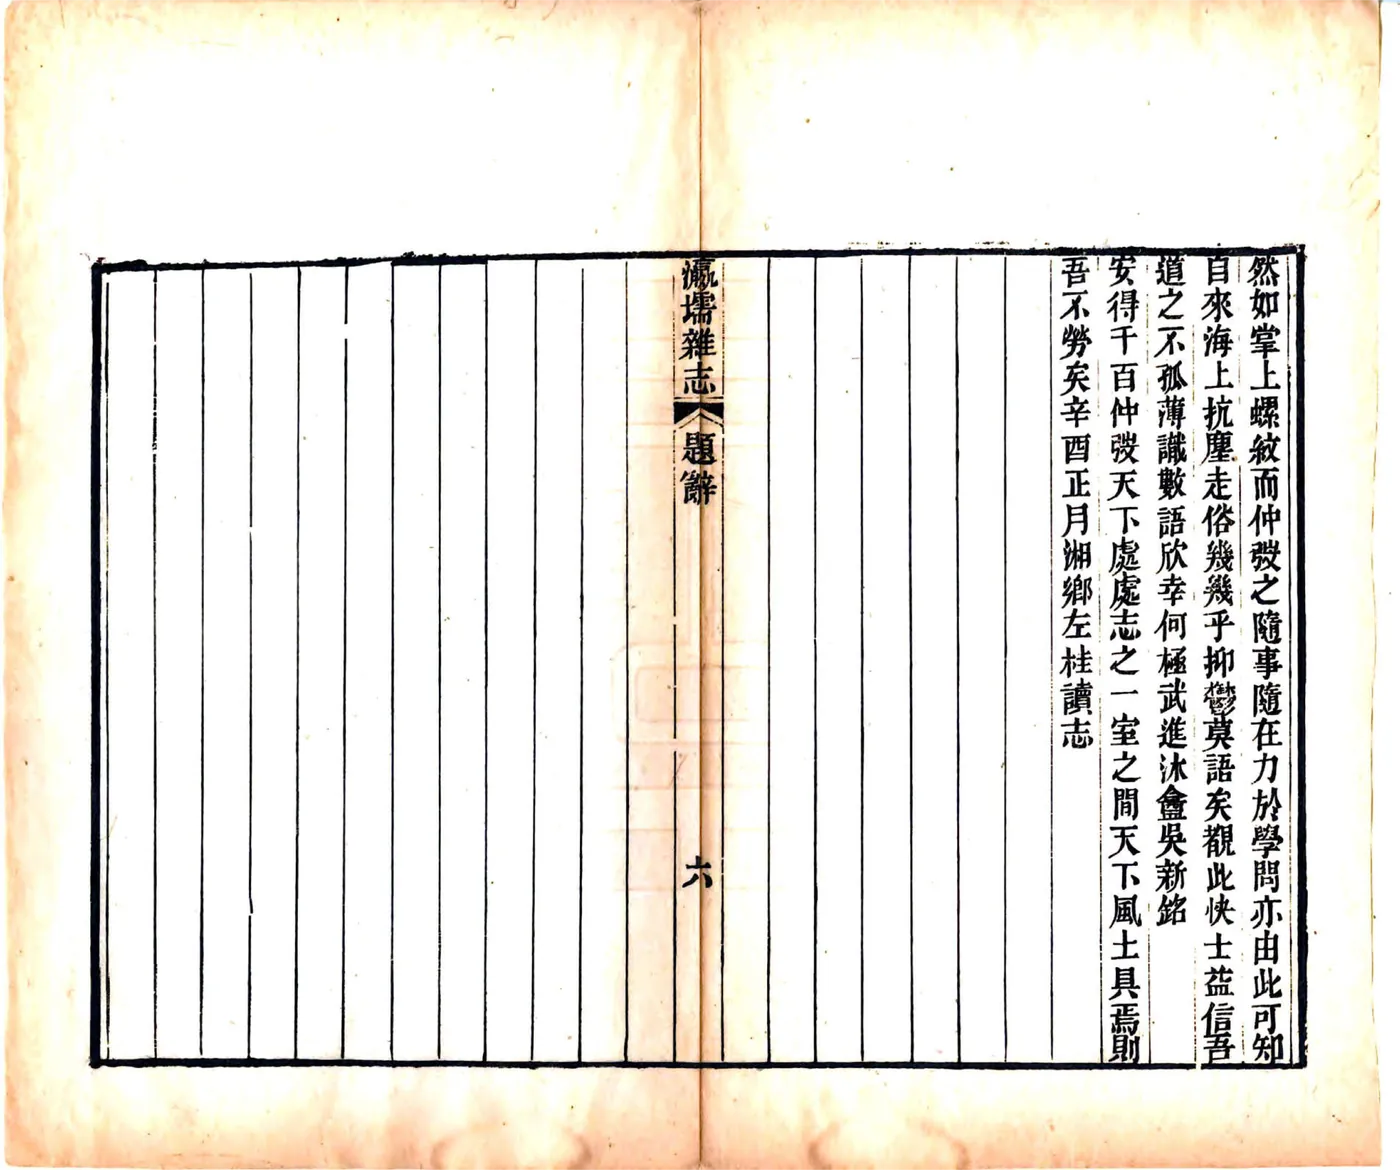 然如掌上螺紋而仲弢之隨事隨在力於學問亦由此可知
自來海上抗塵走俗幾幾乎抑鬱莫語矣覩此快士益信吾
道之不孤薄識數語欣幸何極武進沐盦吳新銘
安得千百仲弢天下處處志之一室之間天下風土具焉則
吾不勞矣辛酉正月湘鄉左桂讀志
瀛壖雜志
題辭
六